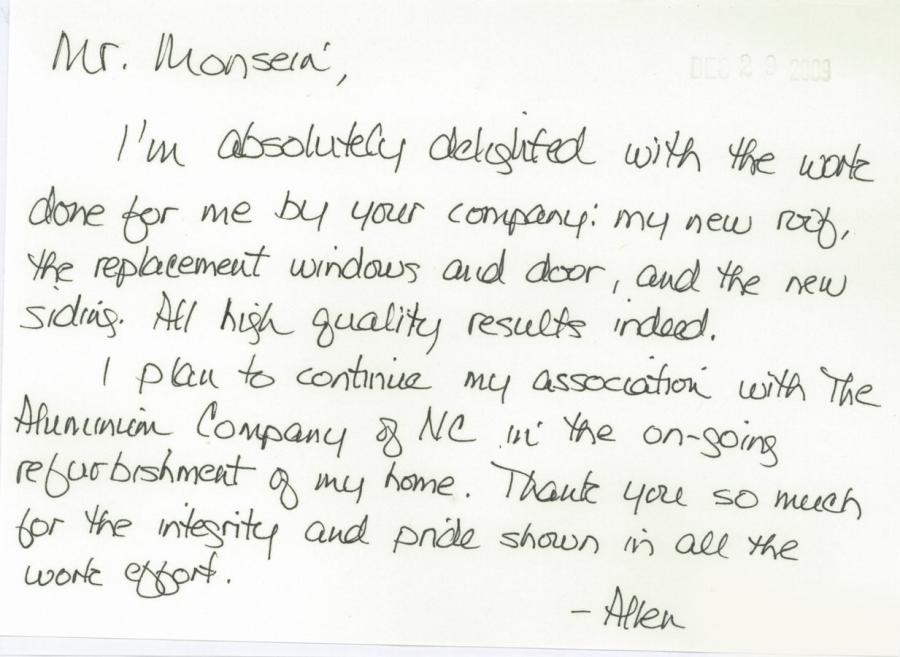 Mr. Monserat,
DEC 29 2009
I'm absolutely delighted with the work
done for me by your company: my new roof,
the replacement windows and door, and the new
siding. All high quality results indeed.
I plan to continue my association with The
Aluminum Company of NC in the on-going
refurbishment of my home. Thank you so much
for the integrity and pride shown in all the
work effort.
- Allen